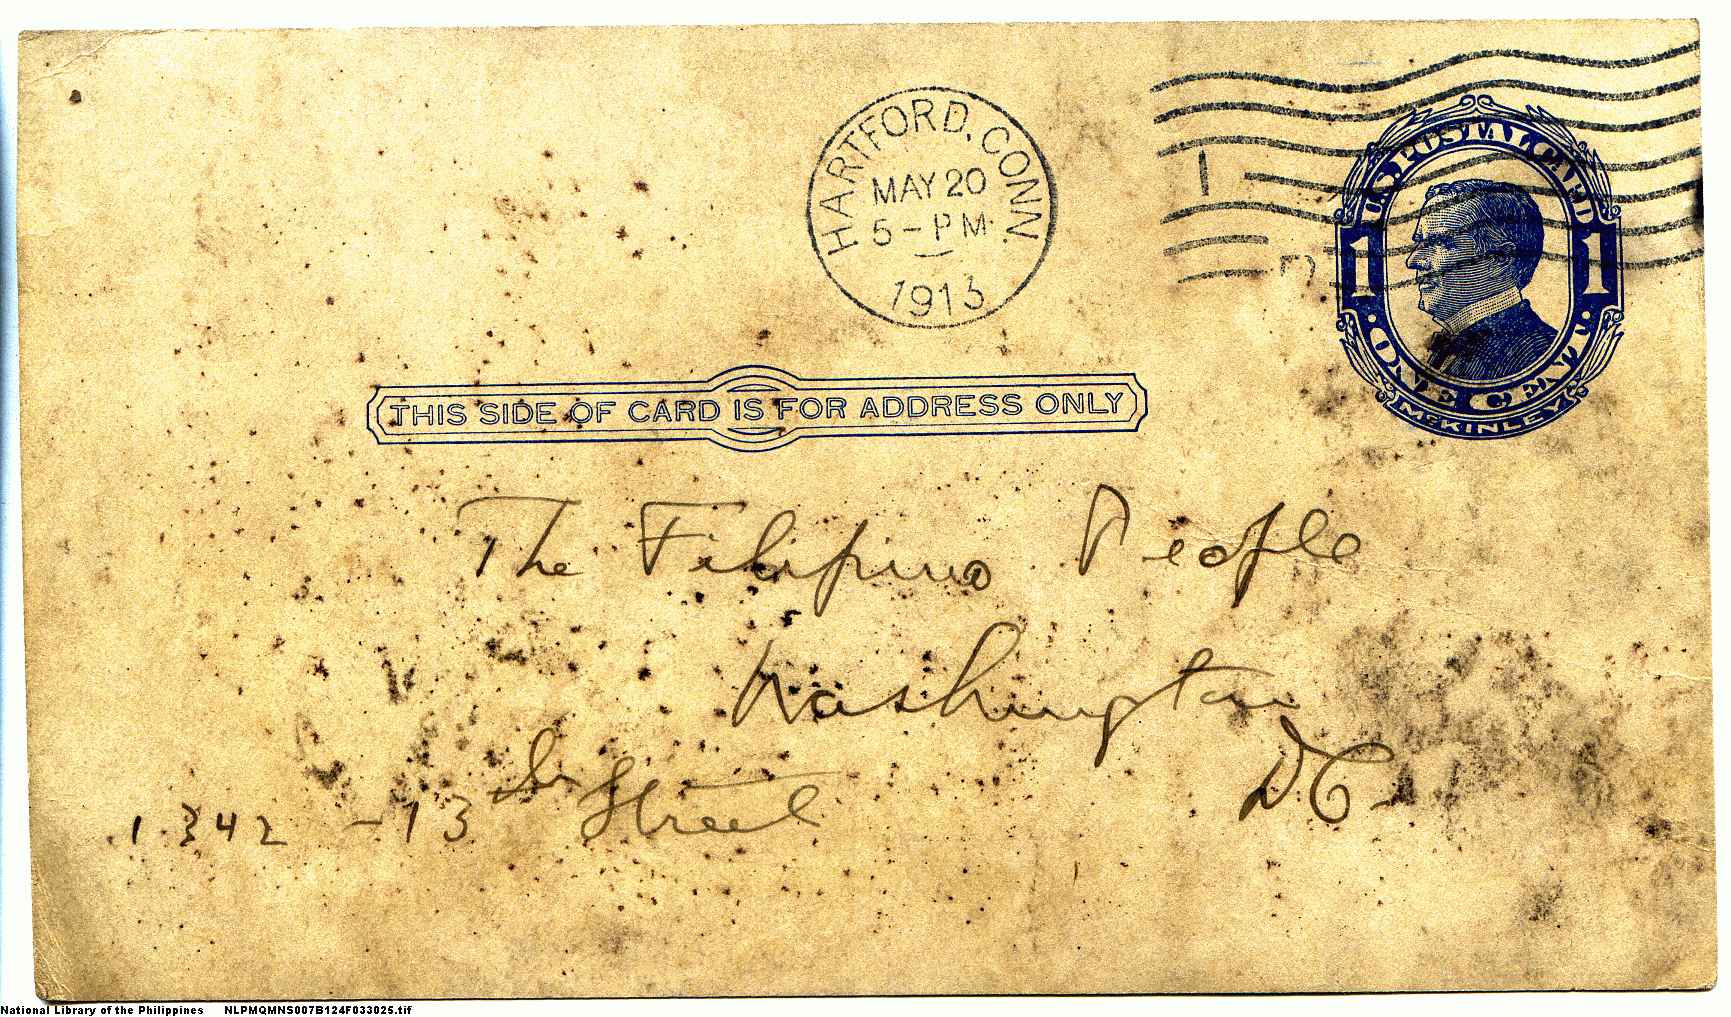 HARTFORD, CONN.
MAY 20
5-PM
1913
1
U.S. POSTAL CARD
1 1
ONE CENT
McKINLEY
THIS SIDE OF CARD IS FOR ADDRESS ONLY
The Filipino People
Washington
D C
1342 - 13 Street
National Library of the Philippines NLPMQMNS007B124F033025.tif